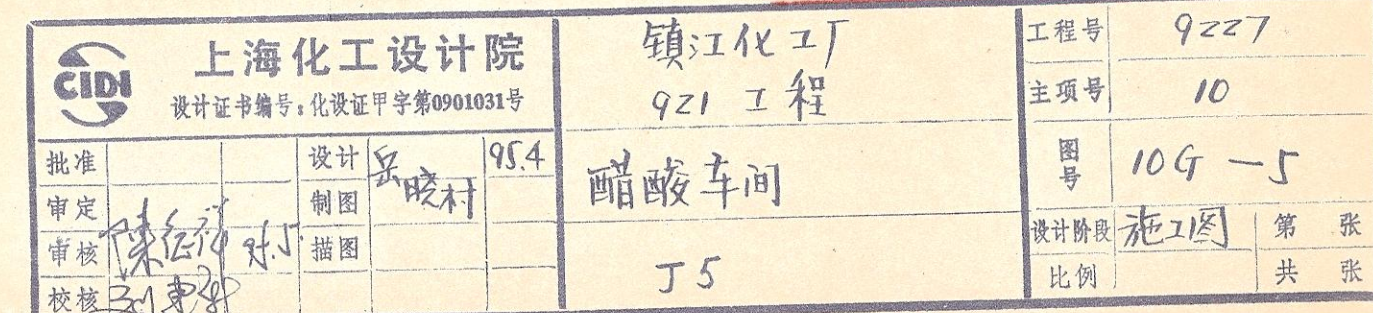 CIDI
上海化工设计院
设计证书编号：化设证甲字第0901031号
批准
设计 岳晓村 95.4
审定
制图
审核 95.5
描图
校核
镇江化工厂
921 工程
醋酸车间
J5
工程号 9227
主项号 10
图号 10G-5
设计阶段 施工图 第 张
比例 共 张